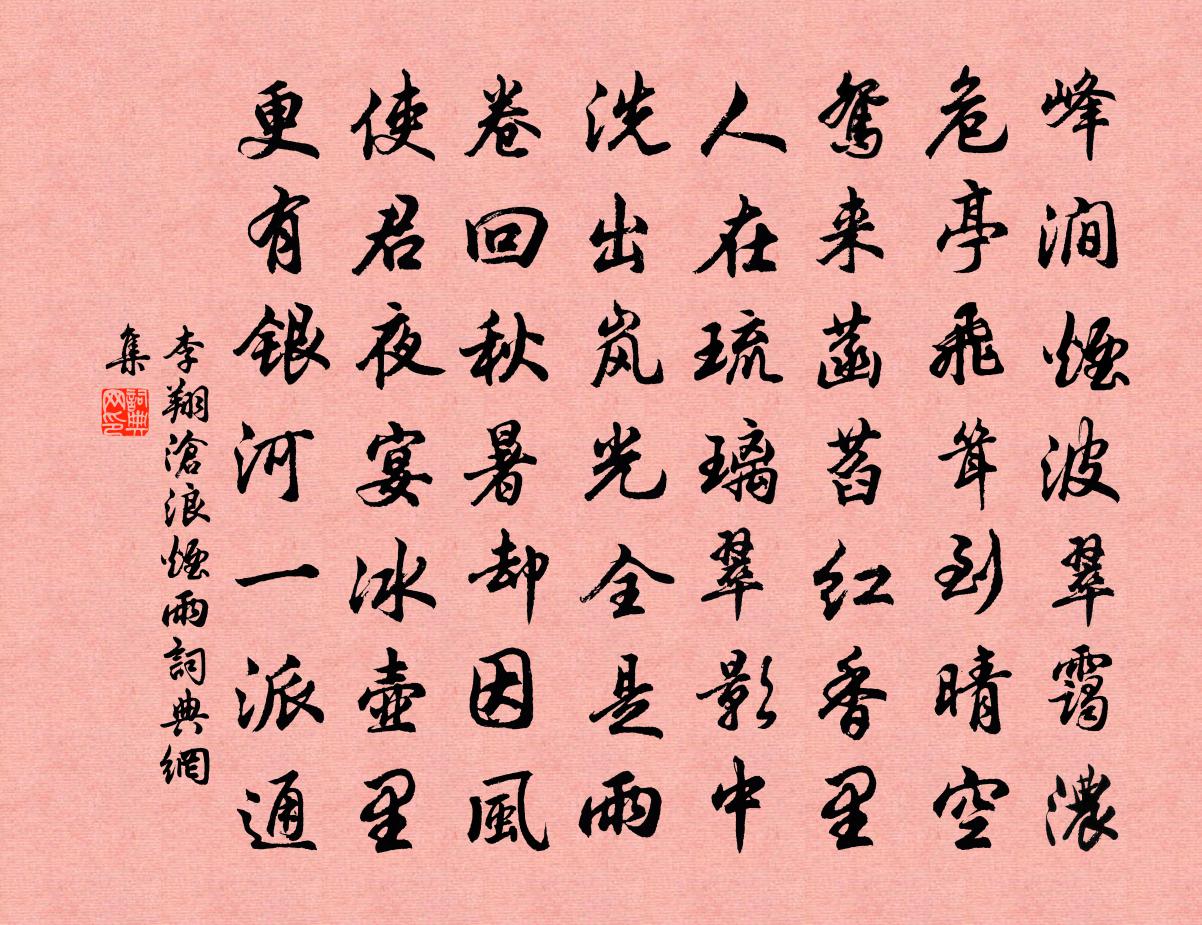 峰澗煙波翠靄濃
危亭飛聳到晴空
駕来菡萏红香里
人在琉璃翠影中
洗出岚光全是雨
卷回秋暑却因風
使君夜宴冰壺里
更有银河一派通
李翔滄浪煙雨詞典網
集
詞典网印